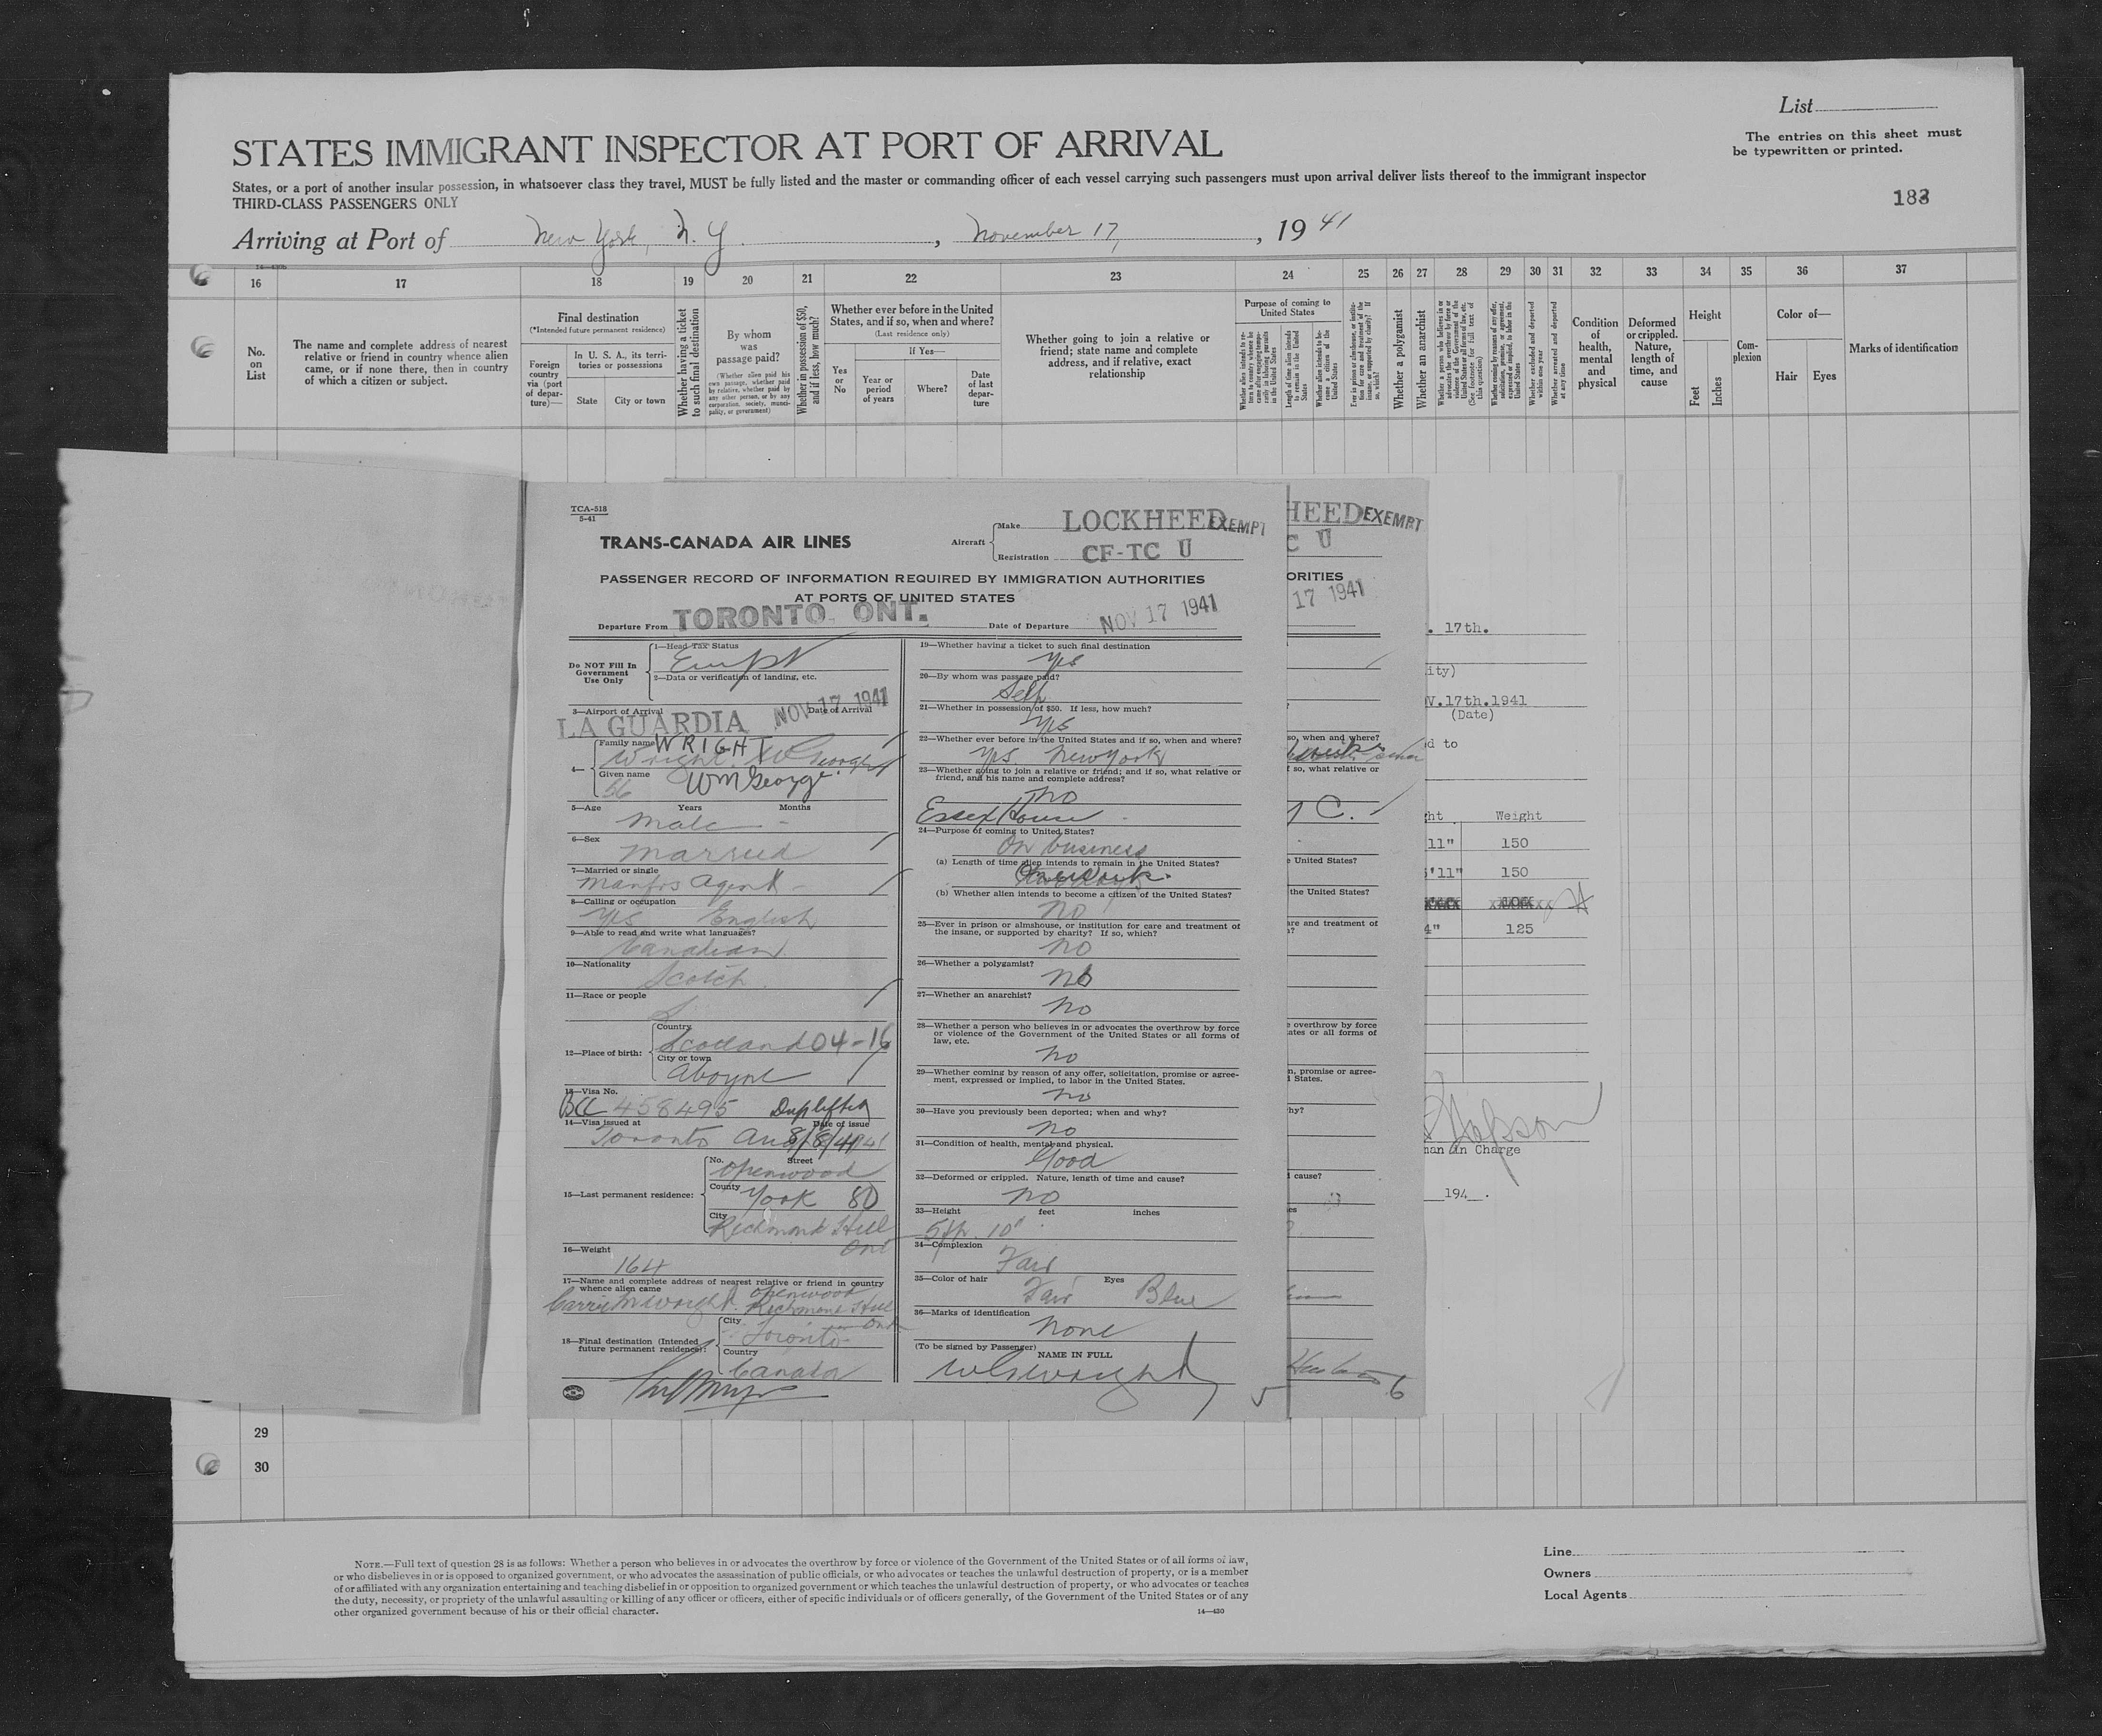 List
The entries on this sheet must
be typewritten or printed.
STATES IMMIGRANT INSPECTOR AT PORT OF ARRIVAL
States, or a port of another insular possession, in whatsoever class they travel, MUST be fully listed and the master or commanding officer of each vessel carrying such passengers must upon arrival deliver lists thereof to the immigrant inspector
THIRD-CLASS PASSENGERS ONLY
183
Arriving at Port of New York, N. Y. , November 17, , 19 41
16 17 18 19 20 21 22 23 24 25 26 27 28 29 30 31 32 33 34 35 36 37
No.
on
List
The name and complete address of nearest
relative or friend in country whence alien
came, or if none there, then in country
of which a citizen or subject.
Final destination
(*Intended future permanent residence)
Foreign
country
via (port
of depar-
ture)—
In U. S. A., its terri-
tories or possessions
State
City or town
Whether having a ticket
to such final destination
By whom
was
passage paid?
(Whether alien paid his
own passage, whether paid
by relative, whether paid by
any other person, or by any
corporation, society, munici-
pality, or government)
Whether in possession of $50,
and if less, how much?
Whether ever before in the United
States, and if so, when and where?
(Last residence only)
Yes
or
No
If Yes—
Year or
period
of years
Where?
Date
of last
depar-
ture
Whether going to join a relative or
friend; state name and complete
address, and if relative, exact
relationship
Purpose of coming to
United States
Whether a polygamist
Whether an anarchist
Condition
of
health,
mental
and
physical
Deformed
or crippled.
Nature,
length of
time, and
cause
Height
Feet
Inches
Com-
plexion
Color of—
Hair
Eyes
Marks of identification
TCA-518
5-41
TRANS-CANADA AIR LINES
Aircraft
Make LOCKHEED EXEMPT
Registration CF-TC U
PASSENGER RECORD OF INFORMATION REQUIRED BY IMMIGRATION AUTHORITIES
AT PORTS OF UNITED STATES
Departure From TORONTO, ONT. Date of Departure NOV 17 1941
Do NOT Fill In
Government
Use Only
1—Head Tax Status
2—Data or verification of landing, etc.
3—Airport of Arrival Date of Arrival
LA GUARDIA NOV 17 1941
4—
Family name WRIGHT
Wright
Given name
Wm George
56
5—Age Years Months
Male
6—Sex
Married
7—Married or single
Manfrs Agent
8—Calling or occupation
Yes English
9—Able to read and write what languages?
Canadian
10—Nationality
Scotch
11—Race or people
12—Place of birth:
Country
Scotland 04-16
City or town
Aboyne
13—Visa No.
458495
14—Visa issued at Date of issue
Toronto
15—Last permanent residence:
No. Street
Openwood
County York 80
City
Richmond Hill
Ont
16—Weight
164
17—Name and complete address of nearest relative or friend in country
whence alien came
Openwood
Richmond Hill
Ont
18—Final destination (Intended
future permanent residence):
City
Toronto
Country
Canada
19—Whether having a ticket to such final destination
Yes
20—By whom was passage paid?
Self
21—Whether in possession of $50. If less, how much?
Yes
22—Whether ever before in the United States and if so, when and where?
Yes New York
23—Whether going to join a relative or friend; and if so, what relative or
friend, and his name and complete address?
No
Essex House
24—Purpose of coming to United States?
On business
(a) Length of time alien intends to remain in the United States?
(b) Whether alien intends to become a citizen of the United States?
No
25—Ever in prison or almshouse, or institution for care and treatment of
the insane, or supported by charity? If so, which?
No
26—Whether a polygamist?
No
27—Whether an anarchist?
No
28—Whether a person who believes in or advocates the overthrow by force
or violence of the Government of the United States or all forms of
law, etc.
No
29—Whether coming by reason of any offer, solicitation, promise or agree-
ment, expressed or implied, to labor in the United States.
No
30—Have you previously been deported; when and why?
No
31—Condition of health, mental and physical.
Good
32—Deformed or crippled. Nature, length of time and cause?
No
33—Height feet inches
5ft. 10"
34—Complexion
Fair
35—Color of hair Eyes
Fair Blue
36—Marks of identification
None
(To be signed by Passenger)
NAME IN FULL
WG Wright
5
HEED EXEMPT
C U
ORITIES
17 1941
so, when and where?
f so, what relative or
C.
e United States?
the United States?
are and treatment of
e overthrow by force
ates or all forms of
n, promise or agree-
d States.
hy?
cause?
es
6
. 17th.
ity)
V.17th.1941
(Date)
d to
ht Weight
11" 150
'11" 150
4" 125
man in Charge
194 .
29
30
NOTE.—Full text of question 28 is as follows: Whether a person who believes in or advocates the overthrow by force or violence of the Government of the United States or of all forms of law,
or who disbelieves in or is opposed to organized government, or who advocates the assassination of public officials, or who advocates or teaches the unlawful destruction of property, or is a member
of or affiliated with any organization entertaining and teaching disbelief in or opposition to organized government or which teaches the unlawful destruction of property, or who advocates or teaches
the duty, necessity, or propriety of the unlawful assaulting or killing of any officer or officers, either of specific individuals or of officers generally, of the Government of the United States or of any
other organized government because of his or their official character.
14—430
Line
Owners
Local Agents